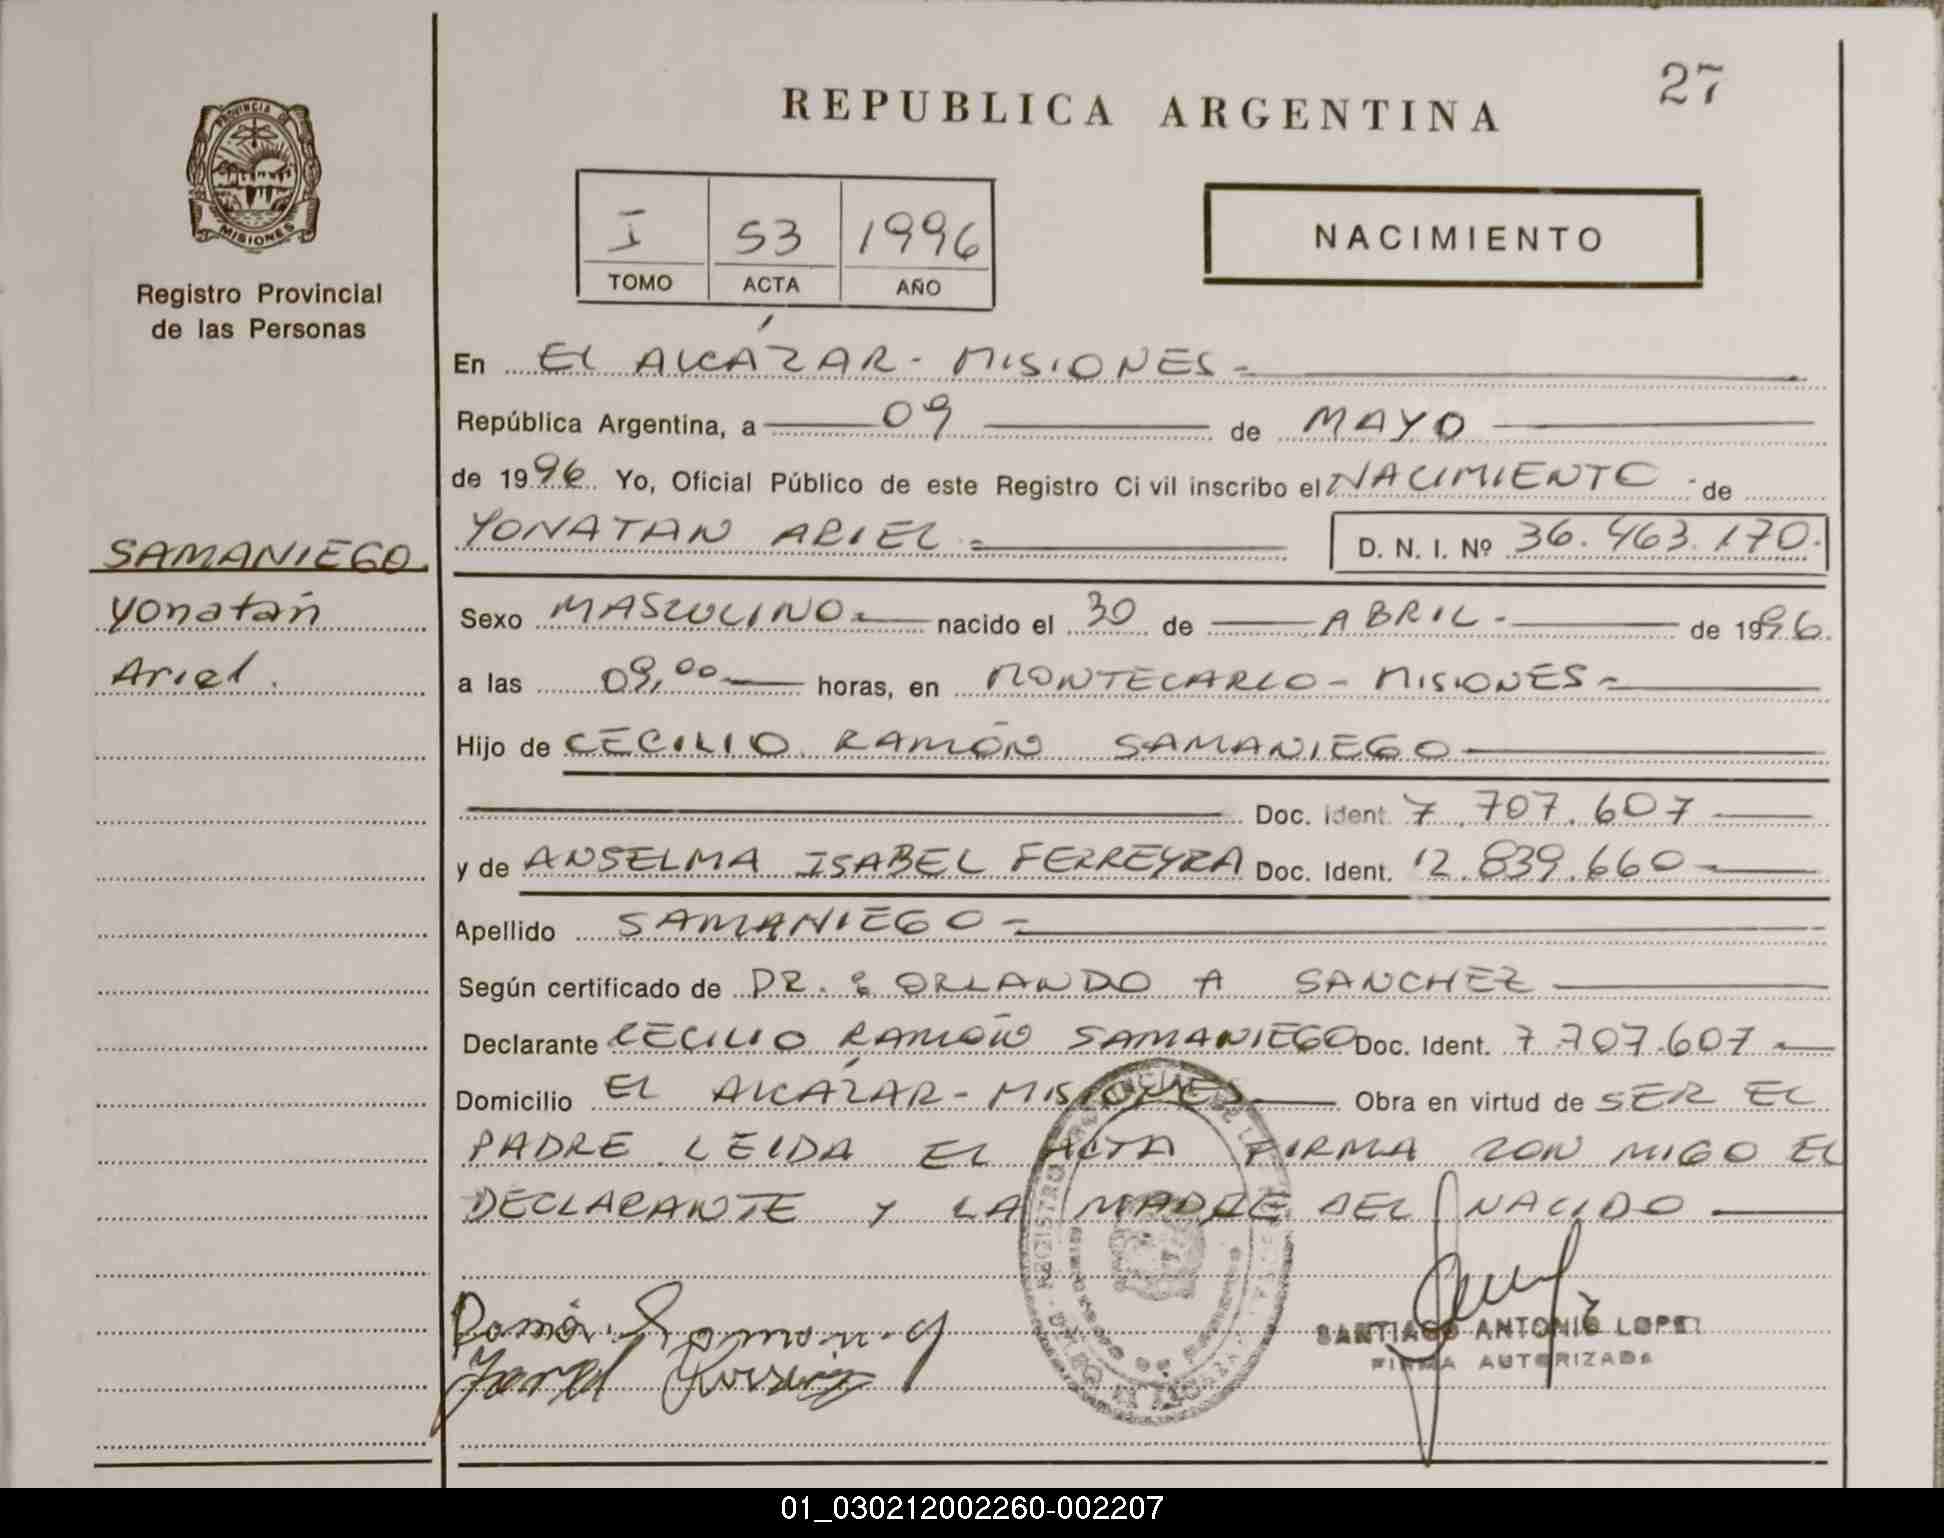 27
REPUBLICA ARGENTINA
PROVINCIA DE
MISIONES
Registro Provincial
de las Personas
I 53 1996
TOMO ACTA AÑO
NACIMIENTO
En EL ALCÁZAR - MISIONES -
República Argentina, a 09 de MAYO
de 1996 Yo, Oficial Público de este Registro Civil inscribo el NACIMIENTO de
YONATAN ARIEL = D. N. I. Nº 36.463.170.
SAMANIEGO
Yonatan
Ariel.
Sexo MASCULINO nacido el 30 de ABRIL - de 1996.
a las 09,00 horas, en MONTECARLO - MISIONES -
Hijo de CECILIO RAMÓN SAMANIEGO
Doc. Ident. 7.707.607
y de ANSELMA ISABEL FERREYRA Doc. Ident. 12.839.660
Apellido SAMANIEGO -
Según certificado de DR. : ORLANDO A SANCHEZ
Declarante CECILIO RAMÓN SAMANIEGO Doc. Ident. 7.707.607
Domicilio EL ALCÁZAR - MISIONES Obra en virtud de SER EL
PADRE LEIDA EL ACTA FIRMA CON MIGO EL
DECLARANTE Y LA MADRE DEL NACIDO
SANTIAGO ANTONIO LOPEZ
FIRMA AUTORIZADA
01_030212002260-002207